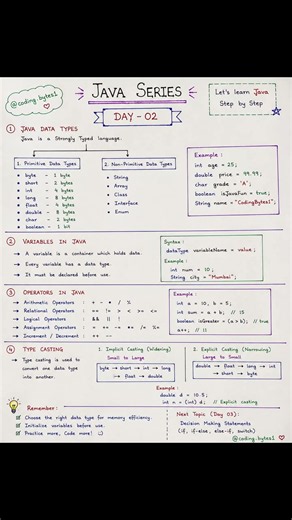 @coding.bytes1
JAVA SERIES
DAY - 02
Let's learn Java
Step by Step
1 JAVA DATA TYPES
Java is a Strongly Typed language.
1. Primitive Data Types
→ byte - 1 byte
→ short - 2 byte
→ int - 4 bytes
→ long - 8 bytes
→ float - 4 bytes
→ double - 8 bytes
→ char - 2 bytes
→ boolean - 1 bit
2. Non-Primitive Data Types
→ String
→ Array
→ Class
→ Interface
→ Enum
Example :
int age = 25;
double price = 99.99;
char grade = 'A';
boolean isJavaFun = true;
String name = "CodingBytes1";
2 VARIABLES IN JAVA
→ A variable is a container which holds data.
→ Every variable has a data type.
→ It must be declared before use.
Syntax :
dataType variableName = value;
Example :
int num = 10;
String city = "Mumbai";
3 OPERATORS IN JAVA
→ Arithmetic Operators : + - * / %
→ Relational Operators : == != > < >= <=
→ Logical Operators : && || !
→ Assignment Operators : = += -= *= /= %=
→ Increment / Decrement : ++ --
Example :
int a = 10, b = 5;
int sum = a + b; // 15
boolean isGreater = (a > b); // true
a++; // 11
4 TYPE CASTING
→ Type casting is used to
convert one data type
into another.
1. Implicit Casting (Widening)
Small to Large
byte → short → int → long
→ float → double
2. Explicit Casting (Narrowing)
Large to Small
double → float → long → int
→ short → byte
Example :
double d = 10.5;
int n = (int) d; // Explicit casting
Remember:
Choose the right data type for memory efficiency.
Initialize variables before use.
Practice more, Code more! :)
Next Topic (Day 03):
Decision Making Statements
(if, if-else, else-if, switch)
@coding.bytes1